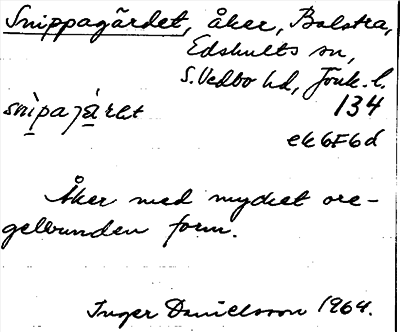 Snippagärdet, åker, Bolstra,
Edshults sn,
S. Vedbo hd, Jönk. l.
snìpajä̀ret 134
ek 6F6d
Åker med mycket ore-
gelbunden form.
Inger Danielsson 1964.